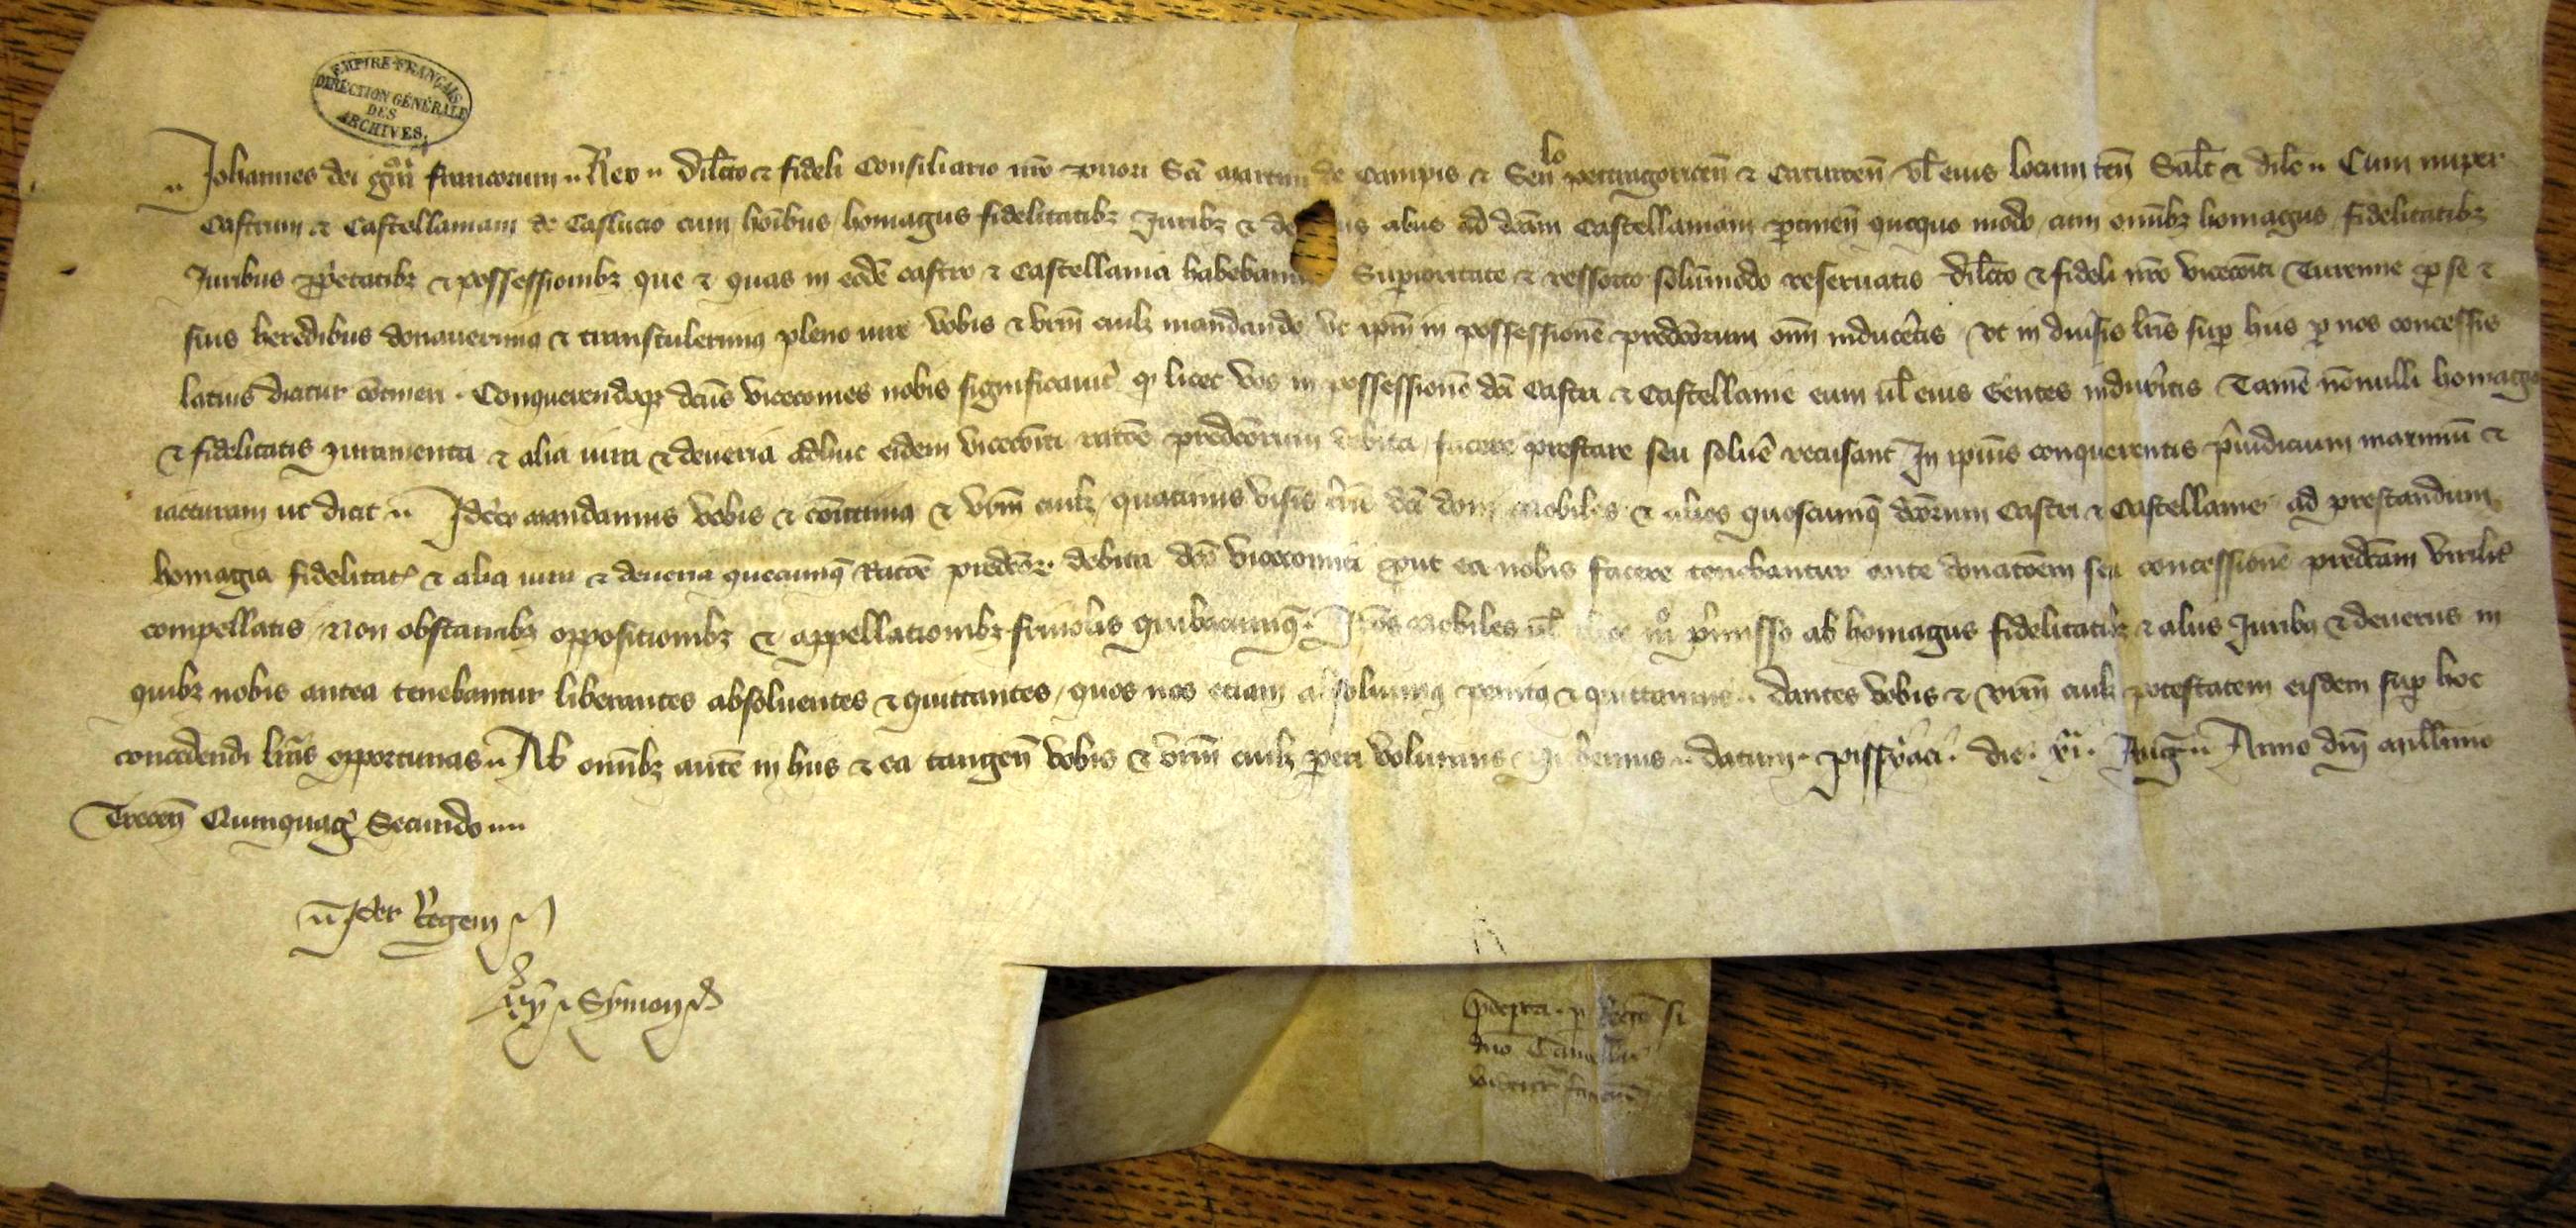 EMPIRE FRANÇAIS
DIRECTION GÉNÉRALE
DES
ARCHIVES.
Johannes dei gra francorum Rex Dilcto & fideli Consiliario nro priori Sci martini de Campis & Senlo petragoricen & Caturcen vl eius locum ten Salt & dilc Cum nuper
Castrum & Castellaniam de Caslucio cum hoibus homagiis fidelitatibz Juribz & aliis ad dcam Castellaniam ptinen quoquo modo cum omibz homagiis fidelitatibz
Juribus ppetatibz & possessionibz que & quas in eode castro & Castellania Supioritate & ressorto solumodo reseruatis dilcto & fideli nro vicecoiti Turenne p se &
suis heredibus donauerimus & transtulerimus pleno iure vobis & vrm cuilz mandando vt ipm in possessione predcorum oim induceretis vt in diusis lris sup hiis p nos concessis
latius dicitur cotineri Conquerendoqz dcus vicecomes nobis significauit q licet vos in possessione dci Castri & Castellanie eum vl eius Gentes induxitis Tame nonulli homagia
& fidelitatis Juramenta & alia iura & deueria adhuc eidem vicecoiti racoe predcorum debita facere prestare seu solue recusant In ipius conquerentis piudicium maximu &
iacturam ut dicit Idcirco mandamus vobis & comittimus & vrm cuilz quatinus visis dci doni nobiles & alios quoscumq dcorum Castri & Castellanie ad prestandum
homagia fidelitat & alia iura & deueria quecumq Racoe predcor debita dco vicecomiti put ea nobis facere tenebantur ante donacoem seu concessione predcam virilit
compellatis Non obstantibz oppositionibz & appellationibz friuolis quibuscumq nobiles vl mo pmisso ab homagiis fidelitatibz & aliis Juribus & deueriis in
quibz nobis antea tenebantur liberantes absoluentes & quittantes quos nos etiam absoluimus & quittamus dantes vobis & vrm cuilz potestatem eisdem sup hoc
concedendi lras opportunas Ab omibz aute in hiis & ea tangen vobis & vrm cuilz peri volumus & iubemus datum pissiaci die xi Aug Anno dni millimo
Trecen Quinquag Secundo
Per Regem
Symon